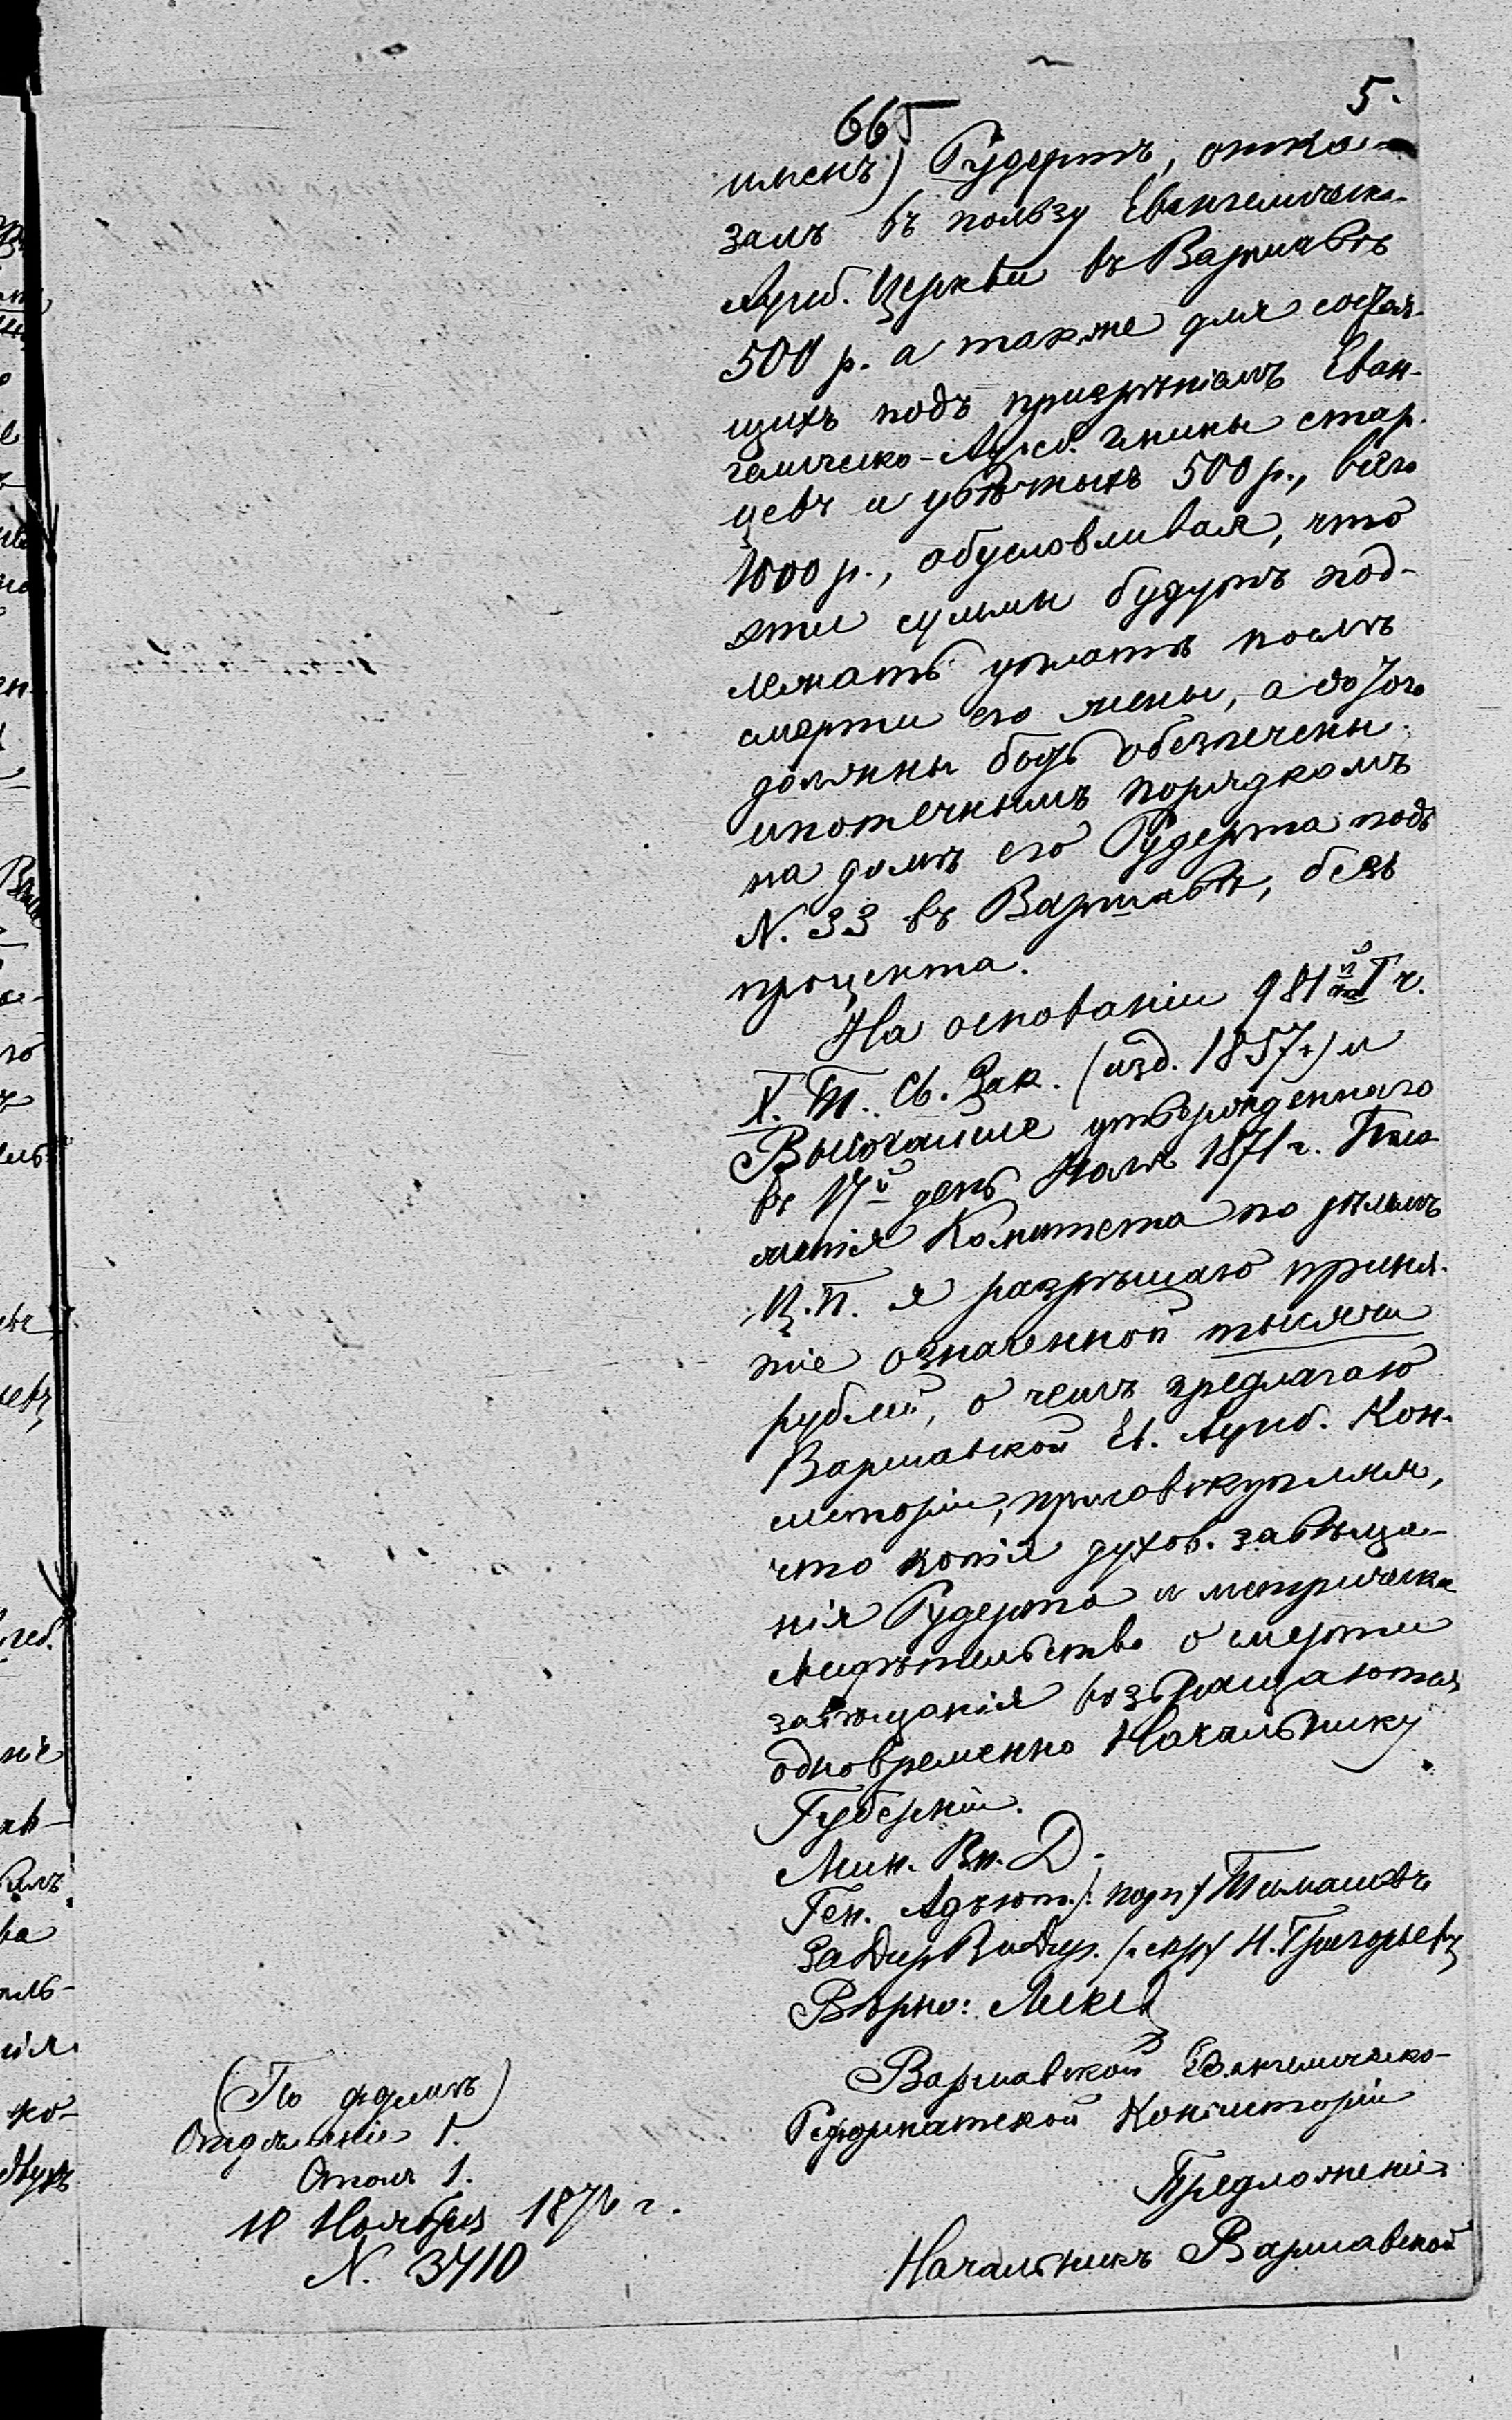 665
5.
именъ) Рудертъ, отка-
залъ въ пользу Евангелическо
Аугсб. Церкви въ Варшавѣ
500 р. а также для состоя-
щихъ подъ призрѣніемъ Еван-
гелическо-Аугсб. Гмины стар-
цевъ и убогихъ 500 р., всего
1000 р., обусловливая, что
эти суммы будутъ под-
лежать уплатѣ послѣ
смерти его жены, а до того
должны быть обезпечены
ипотечнымъ порядкомъ
на домѣ его Рудерта подъ
N. 33 въ Варшавѣ, безъ
процента.
На основаніи 981 I ч.
X. Т. Св. Зак. (изд. 1857 г.) и
Высочайше утвержденнаго
въ 17й день Мая 1871 г. Поло-
женія Комитета по дѣламъ
Ц. П. я разрѣшаю приня-
тіе означенной тысячи
рублей, о чемъ предлагаю
Варшавской Ев. Аугсб. Кон-
систоріи, присовокупляя,
что копія духов. завѣща-
нія Рудерта и метрическо
свидѣтельство о смерти
завѣщанія возвращаются
одновременно Начальнику
Губерніи.
Мин. Вн. Д.
Ген. Адъют. /подп/ Тимашевъ
За Дир Ви Дир. /скр/ Н. Григорьевъ
Вѣрно:
Варшавской Евангелическо-
Реформатской Консисторіи
Предложеніе
Начальникъ Варшавской
(По
Отдѣленіе I.
Столъ 1.
18 Ноября 1876 г.
N. 3710